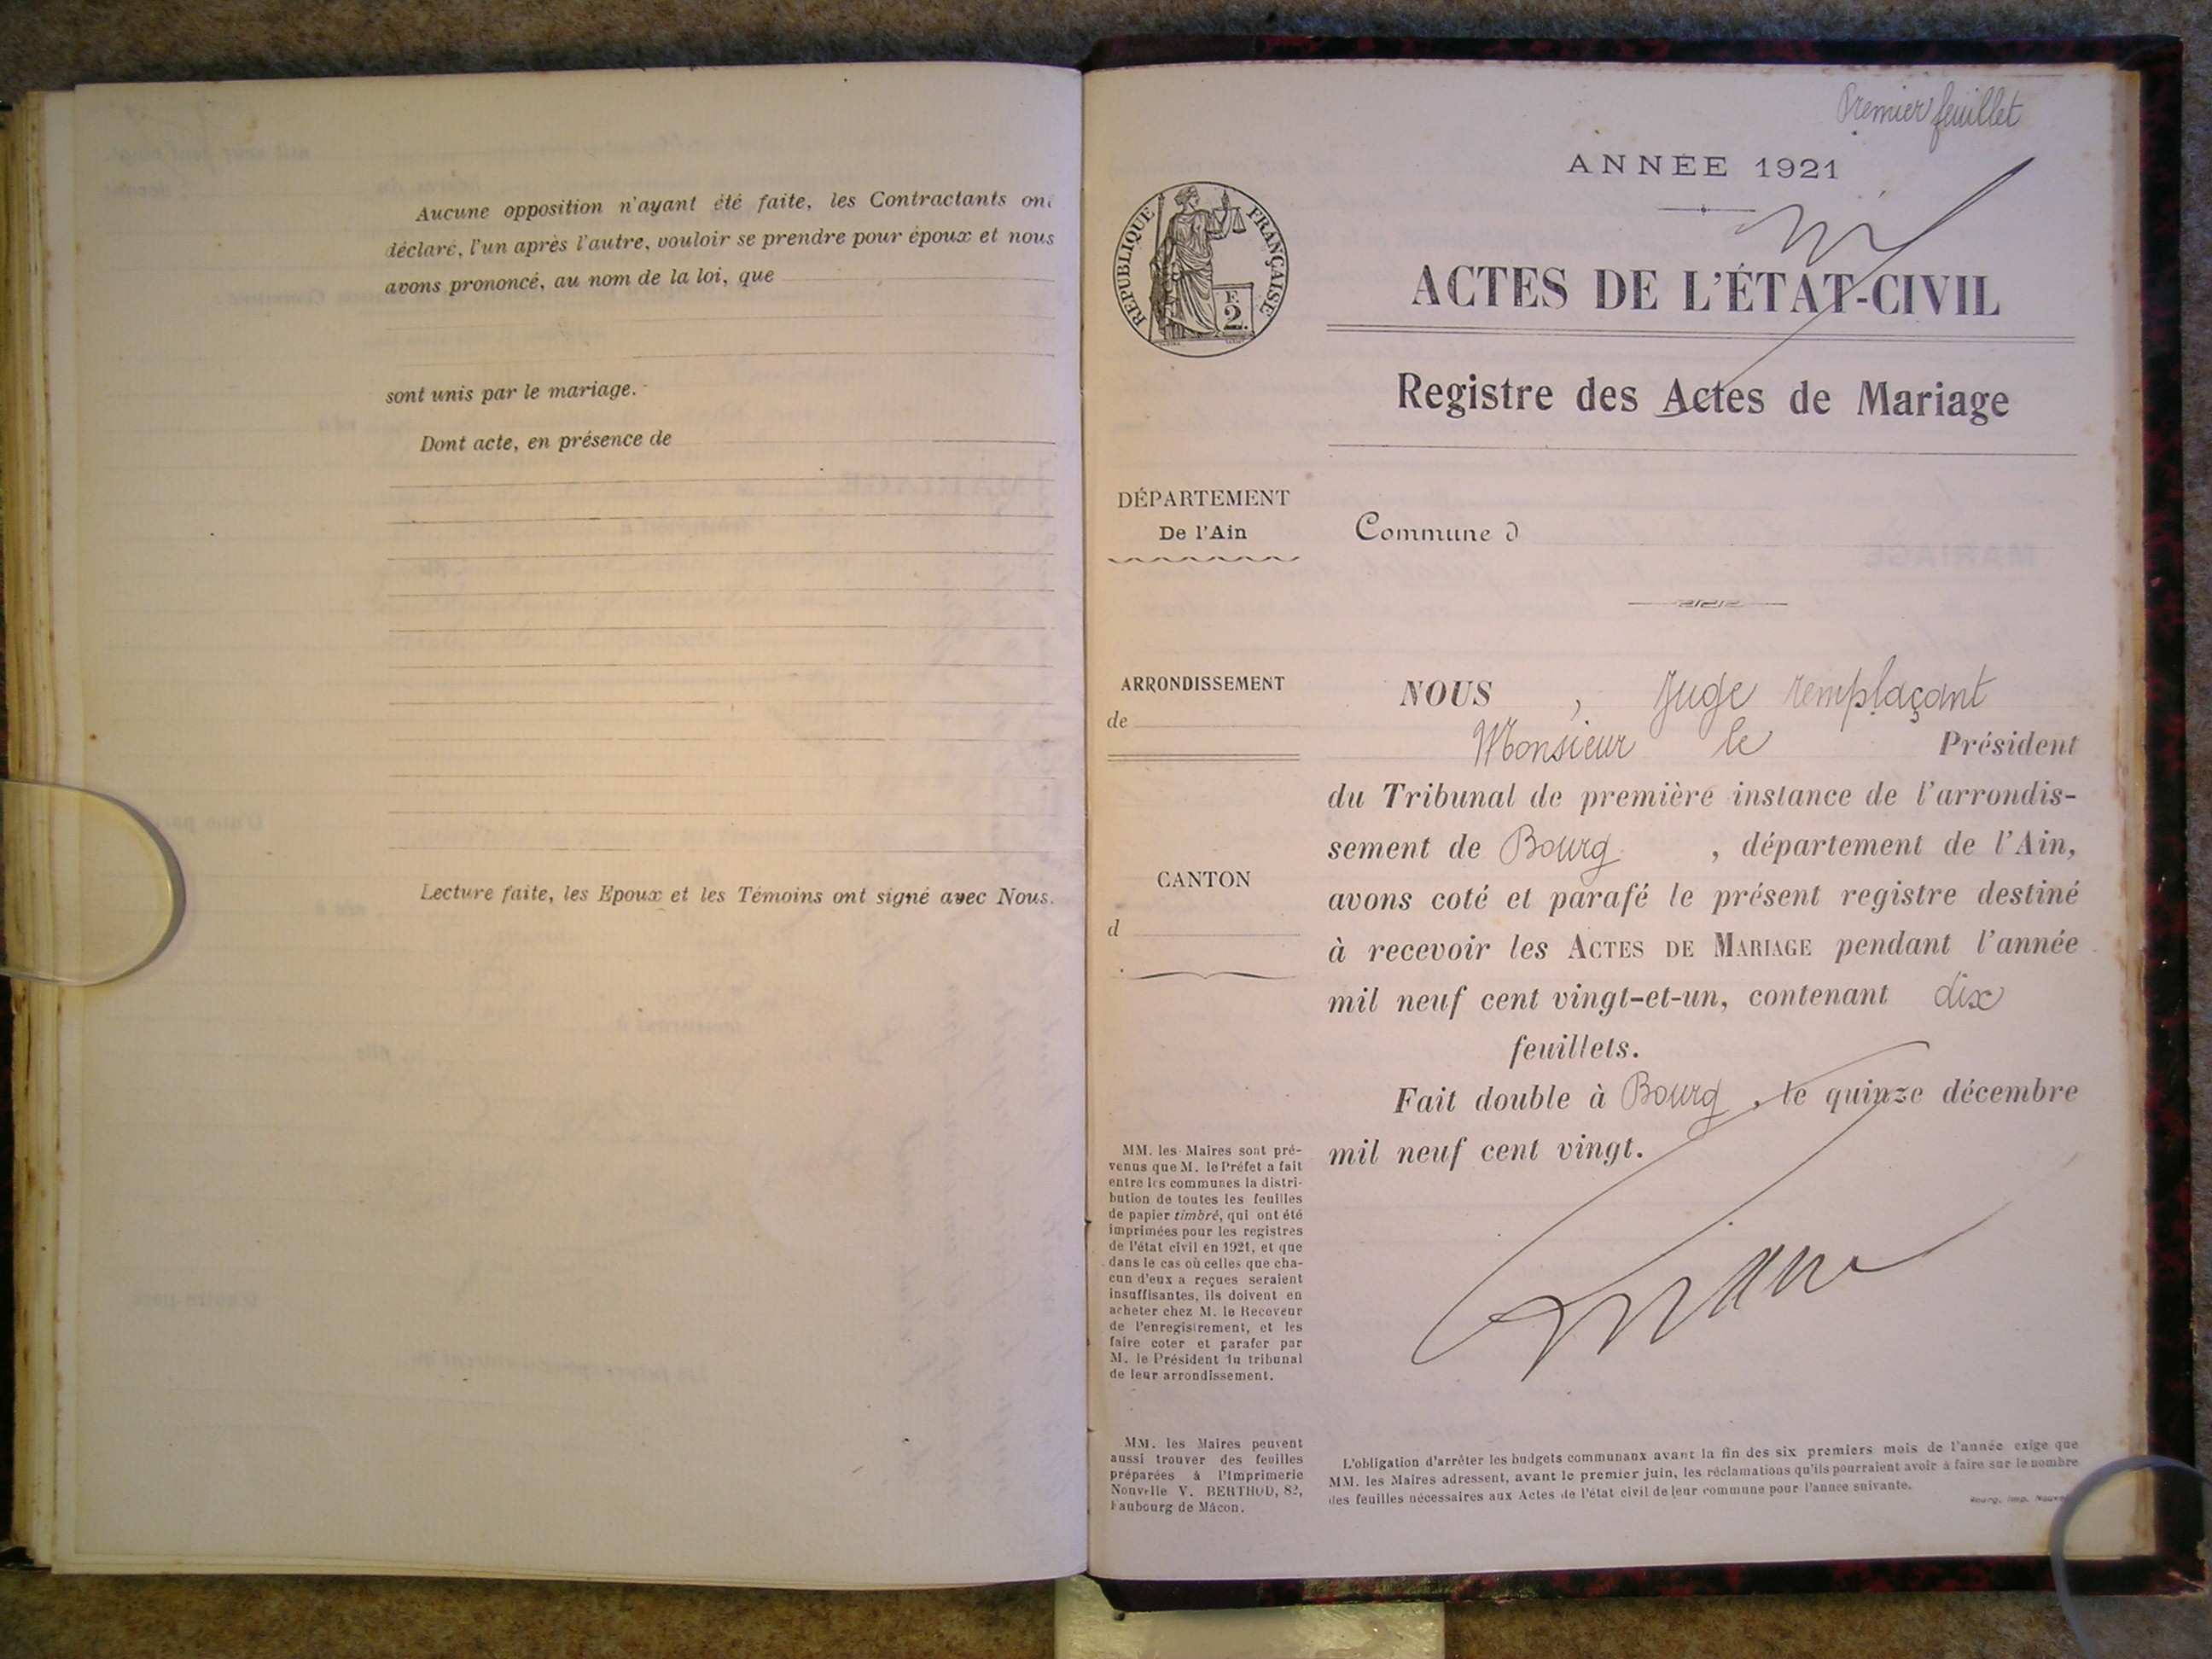 Aucune opposition n'ayant été faite, les Contractants ont
déclaré, l'un après l'autre, vouloir se prendre pour époux et nous
avons prononcé, au nom de la loi, que
sont unis par le mariage.
Dont acte, en présence de
Lecture faite, les Epoux et les Témoins ont signé avec Nous.
Premier feuillet
ANNÉE 1921
RÉPUBLIQUE FRANÇAISE
F.
2.
ACTES DE L'ÉTAT-CIVIL
Registre des Actes de Mariage
DÉPARTEMENT
De l'Ain
Commune d
ARRONDISSEMENT
de
CANTON
d
NOUS , Juge remplaçant
Monsieur le Président
du Tribunal de première instance de l'arrondis-
sement de Bourg , département de l'Ain,
avons coté et parafé le présent registre destiné
à recevoir les ACTES DE MARIAGE pendant l'année
mil neuf cent vingt-et-un, contenant dix
feuillets.
Fait double à Bourg , le quinze décembre
mil neuf cent vingt.
MM. les Maires sont pré-
venus que M. le Préfet a fait
entre les communes la distri-
bution de toutes les feuilles
de papier timbré, qui ont été
imprimées pour les registres
de l'état civil en 1921, et que
dans le cas où celles que cha-
cun d'eux a reçues seraient
insuffisantes, ils doivent en
acheter chez M. le Receveur
de l'enregistrement, et les
faire coter et parafer par
M. le Président du tribunal
de leur arrondissement.
MM. les Maires peuvent
aussi trouver des feuilles
préparées à l'Imprimerie
Nouvelle V. BERTHOD, 82,
Faubourg de Mâcon.
L'obligation d'arrêter les budgets communaux avant la fin des six premiers mois de l'année exige que
MM. les Maires adressent, avant le premier juin, les réclamations qu'ils pourraient avoir à faire sur le nombre
des feuilles nécessaires aux Actes de l'état civil de leur commune pour l'année suivante.
Bourg, Imp.